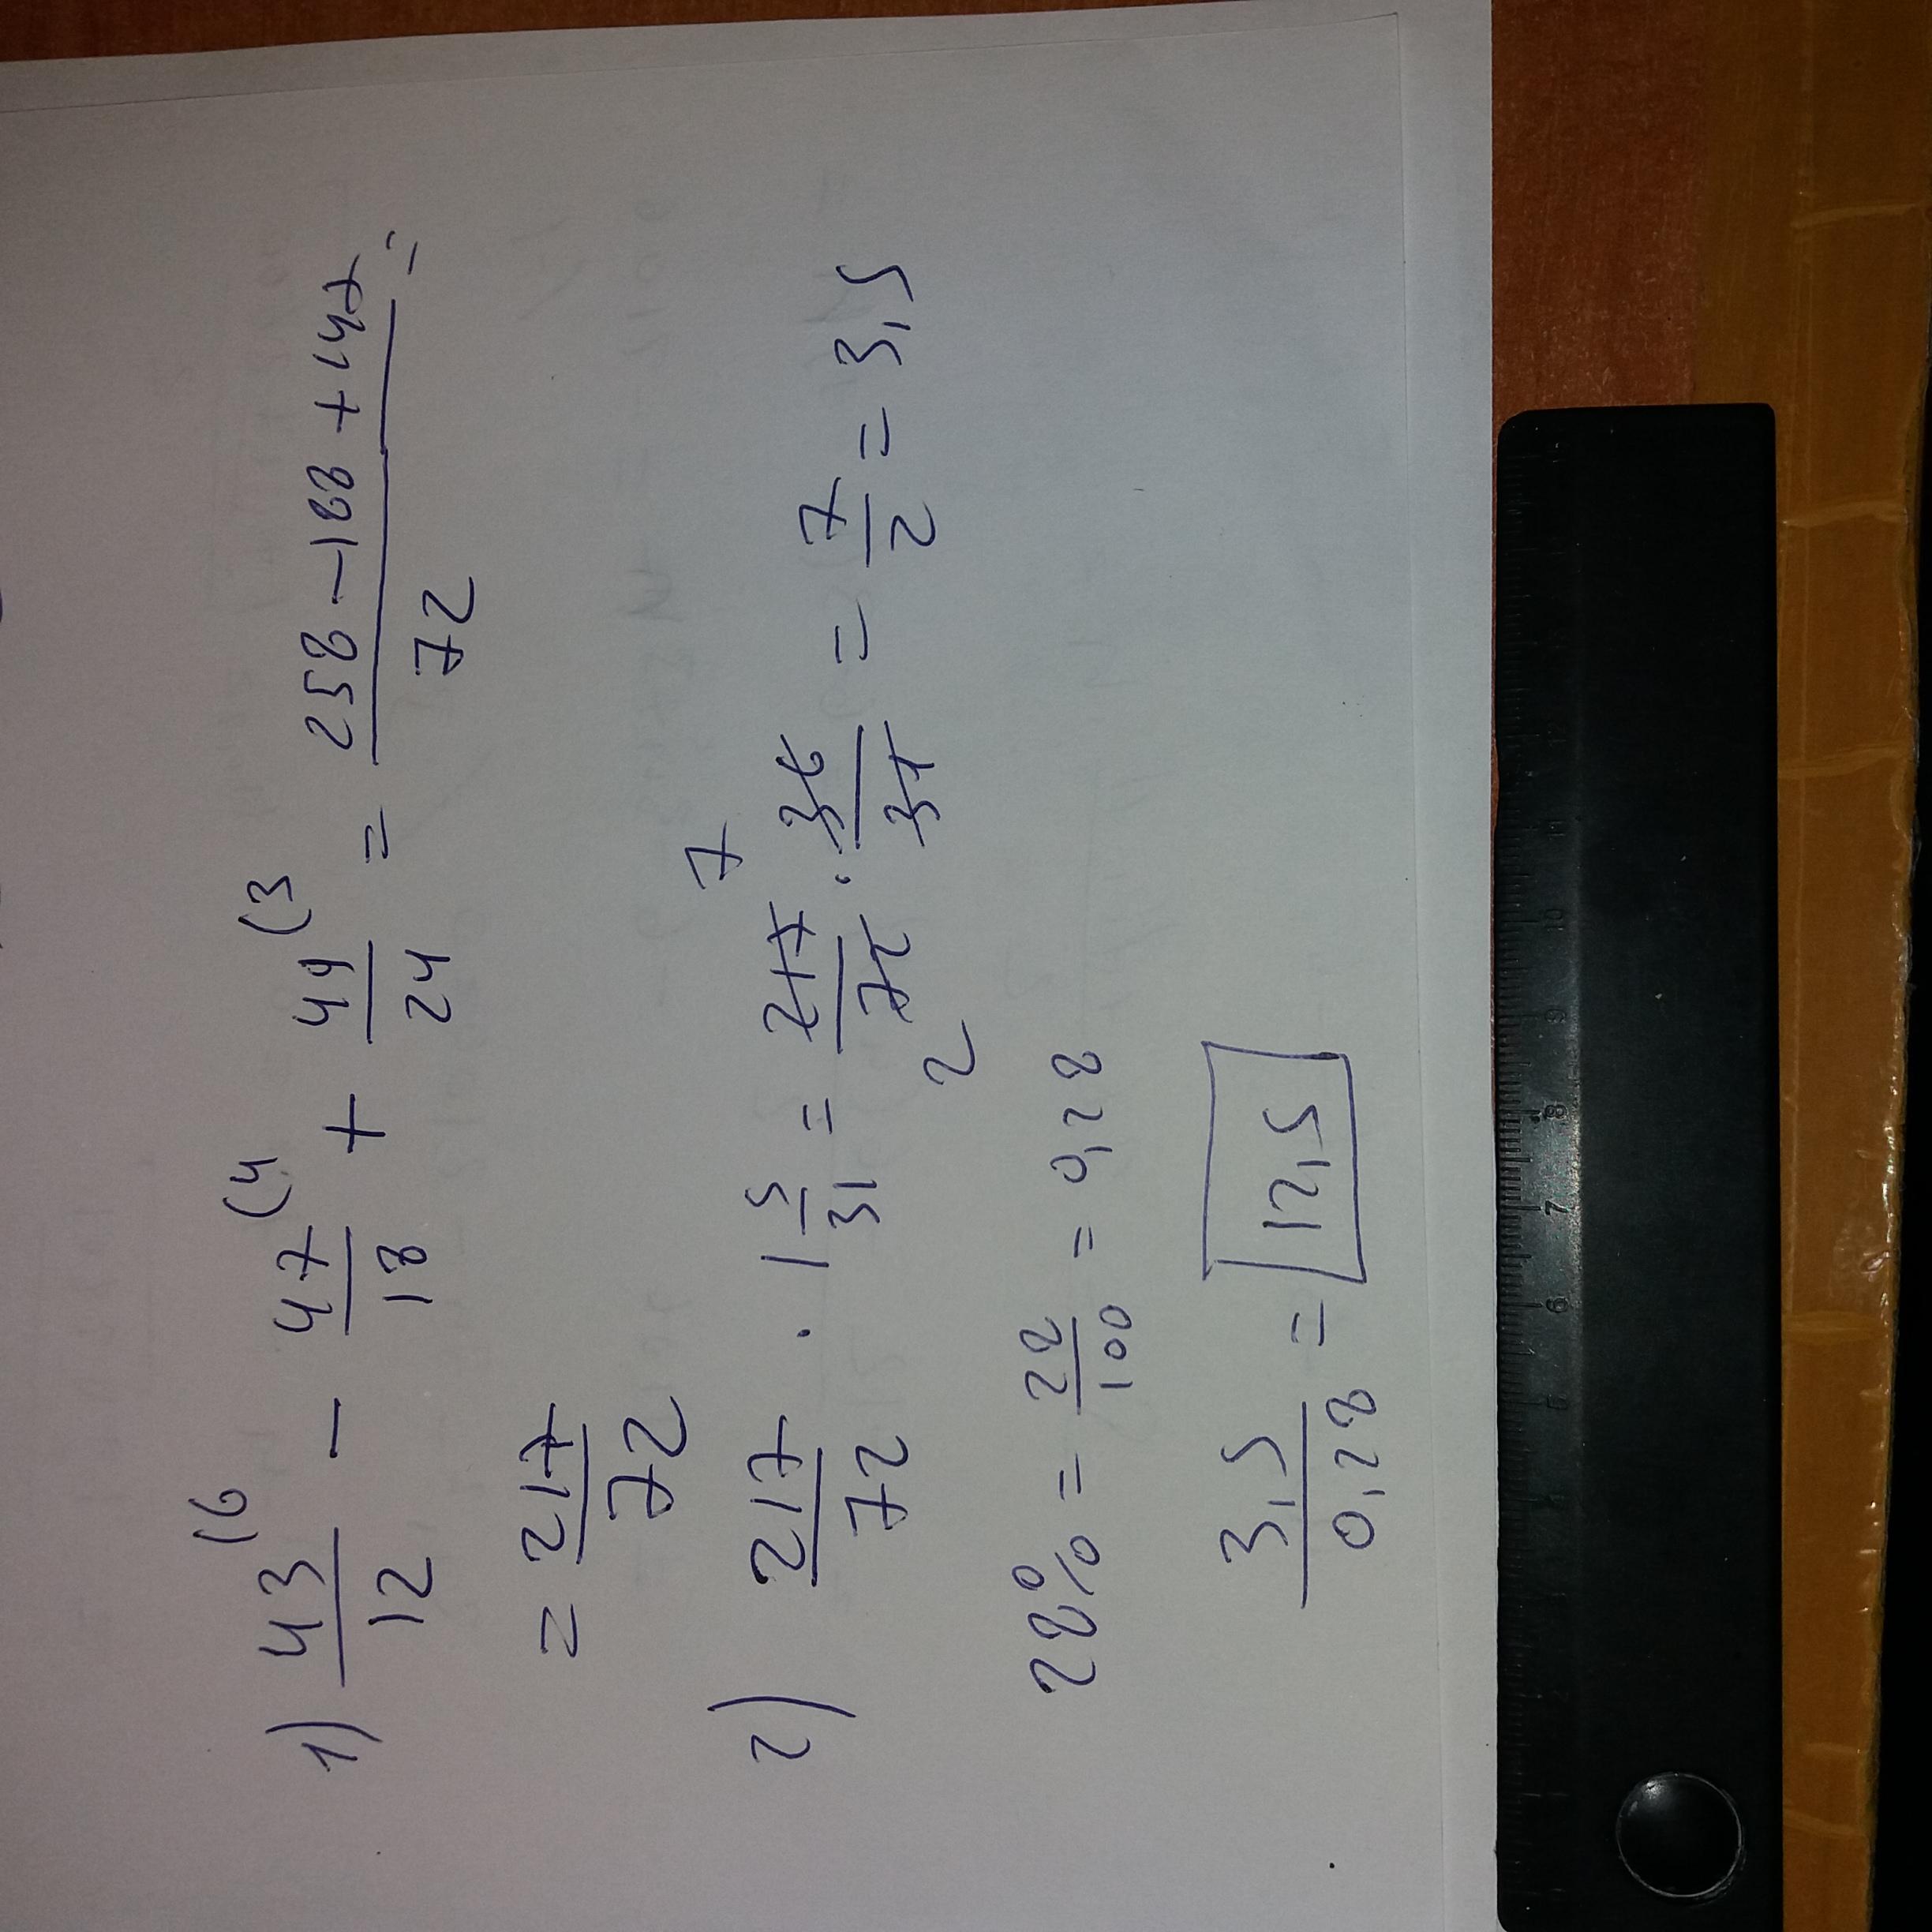 1) 43/12 (6 - 47/18 (4 + 49/24 (3 = 258 - 188 + 147/72 =
= 217/72
2) 217/72 · 1 5/31 = 217/72 · 36/31 = 7/2 = 3,5
7
2
28% = 28/100 = 0,28
3,5/0,28 = 12,5
6 7 8 9 10 11